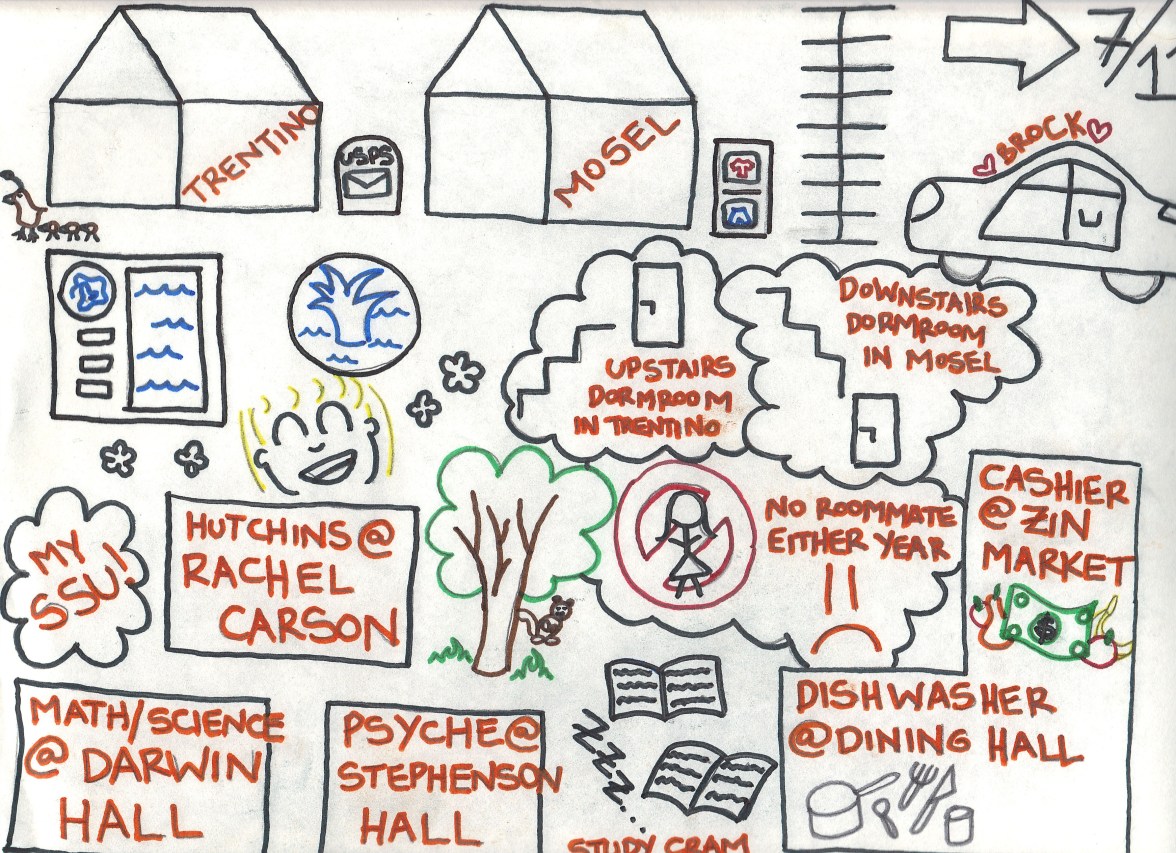 TRENTINO
USPS
MOSEL
7/11
BROCK
UPSTAIRS
DORMROOM
IN TRENTINO
DOWNSTAIRS
DORMROOM
IN MOSEL
MY
SSU!
HUTCHINS @
RACHEL
CARSON
NO ROOMMATE
EITHER YEAR
CASHIER
@ ZIN
MARKET
$
MATH/SCIENCE
@ DARWIN
HALL
PSYCHE @
STEPHENSON
HALL
ZZZZ...
STUDY CRAM
DISHWASHER
@ DINING HALL